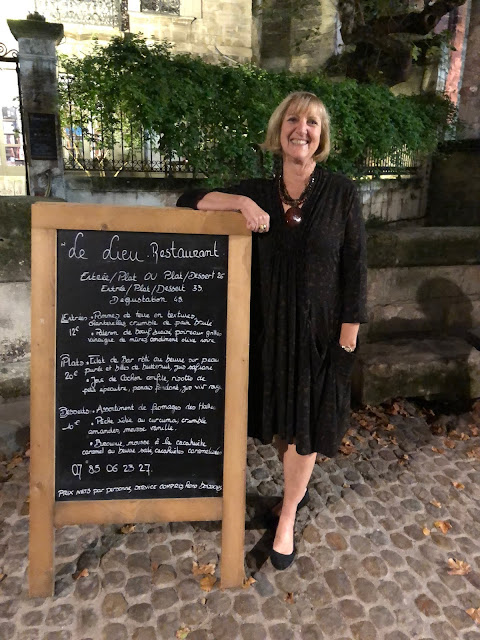 Le Lieu. Restaurant
Entrée/Plat OU Plat/Dessert 26
Entrée/Plat/Dessert 33.
Dégustation 49.
Entrées • Pommes de terre en textures,
chanterelles crumble de pain brulé
12€ • Paleron de bœuf poireaux grillés
vinaigre de mûres condiment olive noire
Plats • Filet de Bar rôti au beurre sur peau
purée et billes de butternut, jus safrané
20€ • Joue de Cochon confite, risotto de
petit épeautre, panais fondant, jus vin rouge
Desserts • Assortiment de fromages des Halles
10€ • Pêche rôtie au curcuma, crumble
amandes, mousse vanille
• Brownie, mousse à la cacahuète
caramel au beurre salé, cacahuètes caramélisées
07 85 06 23 27.
PRIX NETS par personne, SERVICE COMPRIS